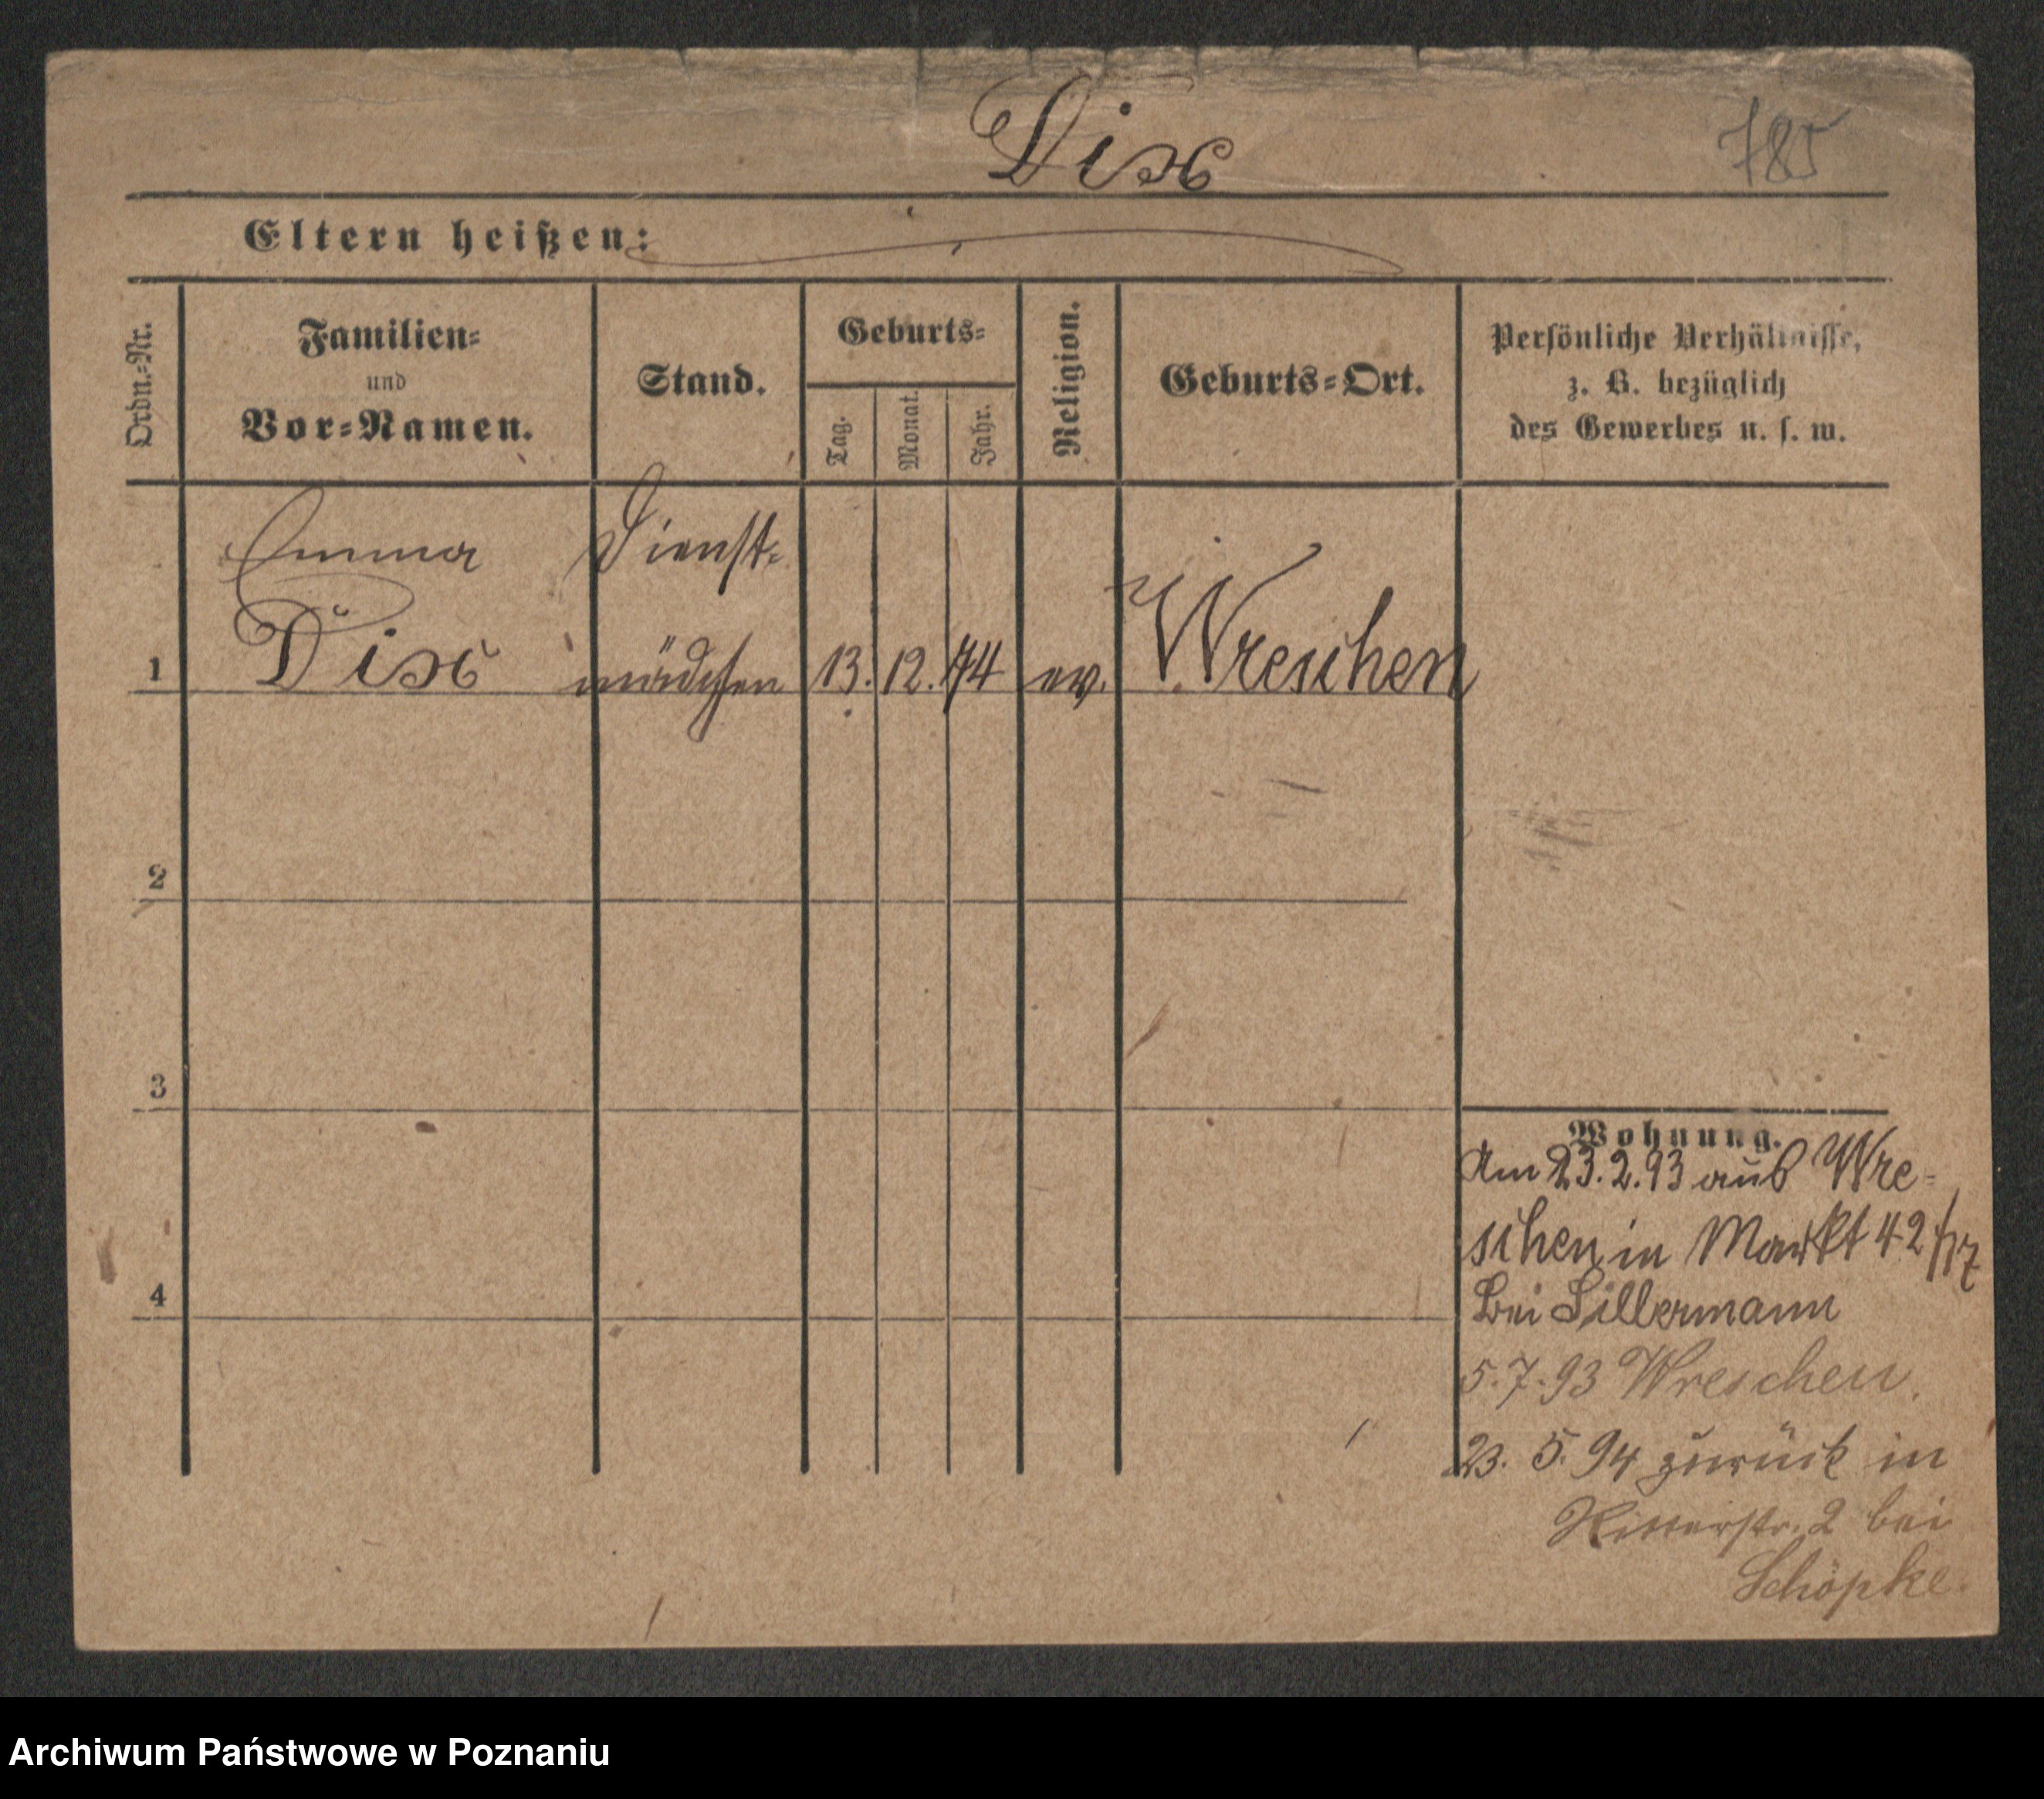 Dix
785
Eltern heißen:
Ordn.-Nr.
Familien-
und
Vor-Namen.
Stand.
Geburts-
Tag.
Monat.
Jahr.
Religion.
Geburts-Ort.
Persönliche Verhältnisse,
z. B. bezüglich
des Gewerbes u. s. w.
Emma Dienst-
1 Dix mädchen 13. 12. 74 ev. Wreschen
2
3
4
Wohnung.
Am 23.2.93 aus Wre-
schen in Markt 42
bei Sillermann
5.7.93 Wreschen.
23. 5. 94 zurück in
Ritterstr. 2 bei
Schöpke.
Archiwum Państwowe w Poznaniu